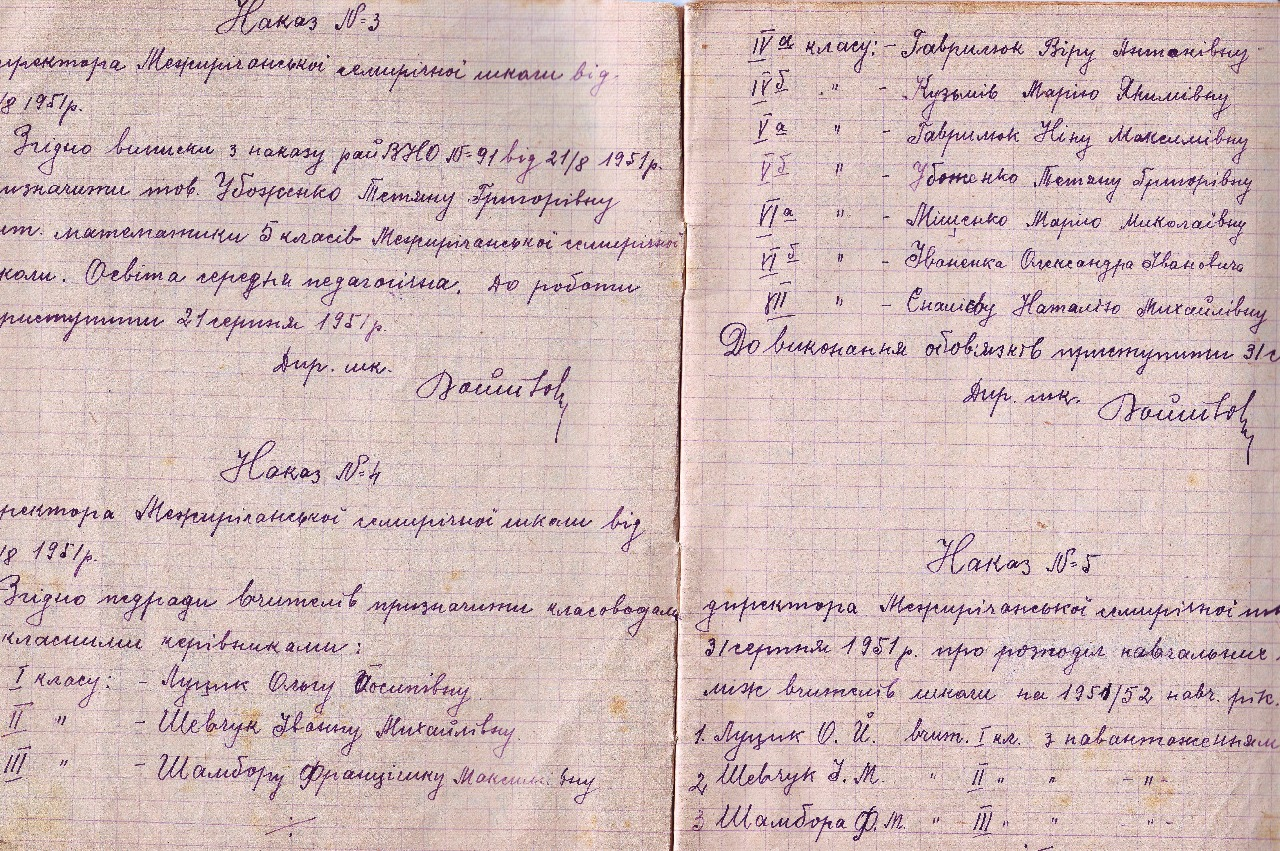 Наказ №3
иректора Межирічанської семирічної школи від
/8 1951р.
Згідно виписки з наказу райВНО №91 від 21/8 1951р.
изначити тов. Убоженко Тетяну Григорівну
ит. математики 5 класів Межирічанської семирічної
коли. Освіта середня педагогічна. До роботи
риступити 21 серпня 1951р.
Дир. шк.
Наказ №4
ректора Межирічанської семирічної школи від
/8 1951р.
Згідно педради вчителів призначити класоводами
класними керівниками:
I класу: - Луцик Ольгу Йосипівну
II " - Шевчук Іванну Михайлівну.
III " - Шамбору Францішку
IVа класу: - Гаврилюк Віру Антонівну
IVб " - Кузьмів Марію Якимівну
Vа " - Гаврилюк Ніну Максимівну
Vб " - Убоженко Тетяну Григорівну
VIа " - Міщенко Марію Миколаївну
VIб " - Іваненка Олександра Івановича
VII " - Єналієву Наталію Михайлівну
До виконання обов'язків приступити 31 с
Дир. шк.
Наказ №5
директора Межирічанської семирічної шк
31 серпня 1951р. про розподіл навчальних
між вчителів школи на 1951/52 навч. рік.
1. Луцик О. Й. вчит. I кл. з навантаженням
2. Шевчук І. М. " II " " -"-
3 Шамбора Ф. М. " III " " -"-